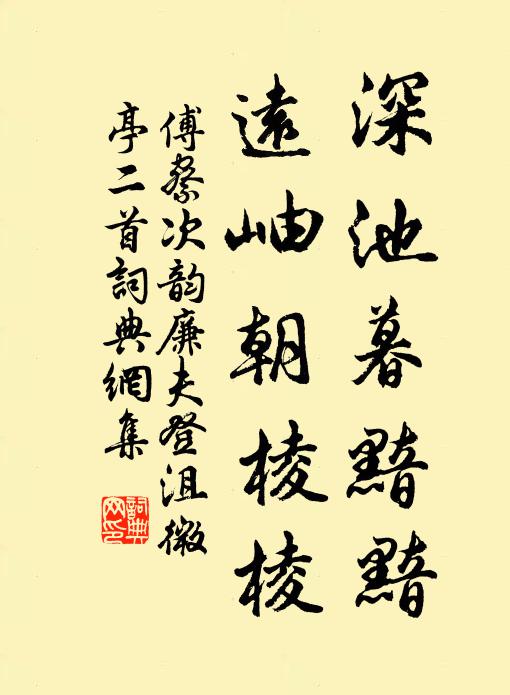 深池暮黯黯
遠岫朝棱棱
傅察次韵廉夫登沮徽
亭二首詞典網集
詞典網印